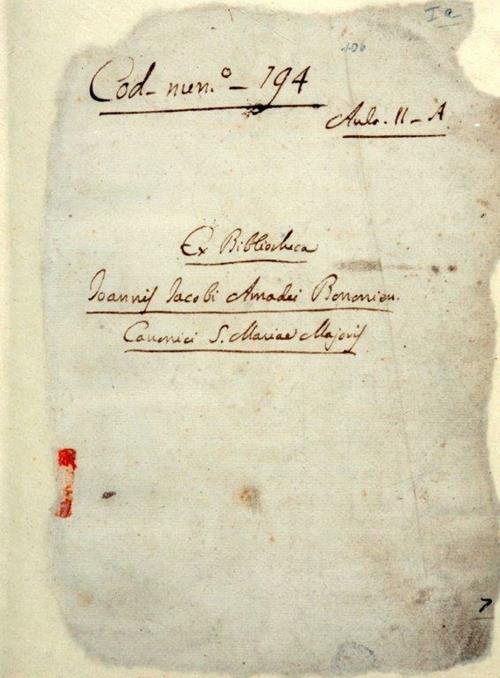 Ia
106
Cod. num.° - 194
Aula. II - A
Ex Bibliotheca
Joannis Jacobi Amadei Bononien.
Canonici S. Mariae Majoris
7